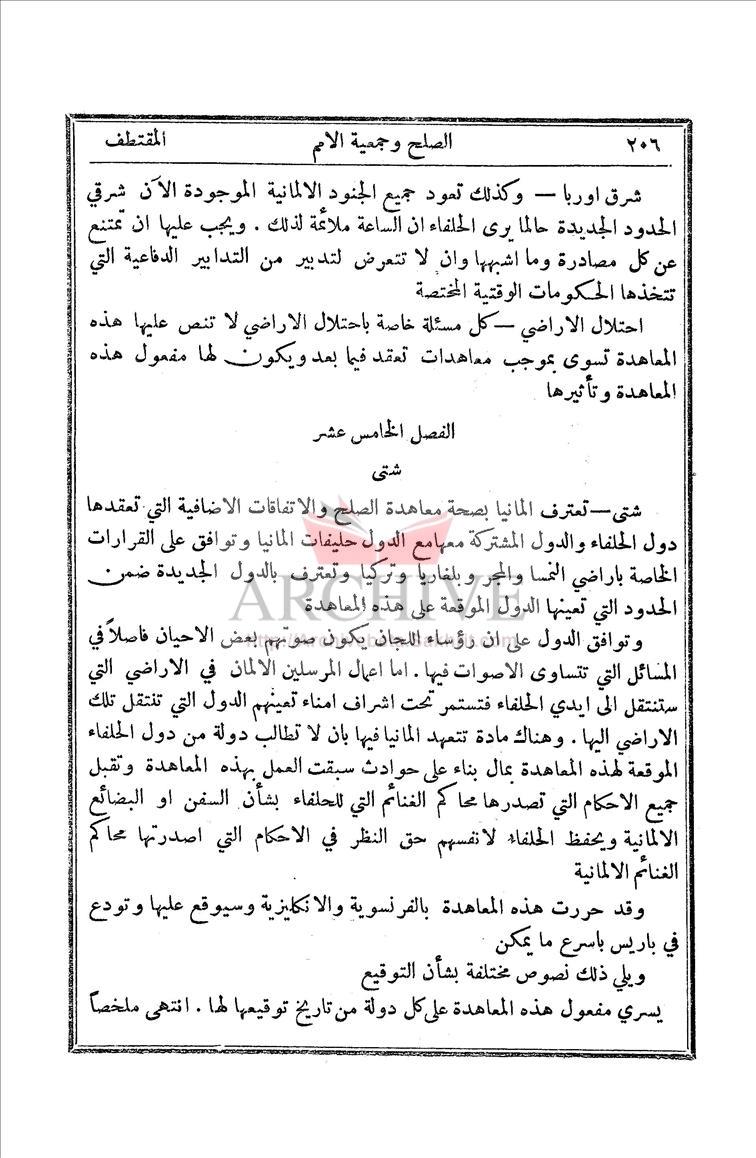 ٢٠٦ الصلح وجمعية الامم المقتطف
شرق اوربا — وكذلك تعود جميع الجنود الالمانية الموجودة الآن شرقي
الحدود الجديدة حالما يرى الحلفاء ان الساعة ملائمة لذلك . ويجب عليها ان تمتنع
عن كل مصادرة وما اشبهها وان لا تتعرض لتدبير من التدابير الدفاعية التي
تتخذها الحكومات الوقتية المختصة
احتلال الاراضي — كل مسئلة خاصة باحتلال الاراضي لا تنص عليها هذه
المعاهدة تسوى بموجب معاهدات تعقد فيما بعد ويكون لها مفعول هذه
المعاهدة وتأثيرها
الفصل الخامس عشر
شتى
شتى — تعترف المانيا بصحة معاهدة الصلح والاتفاقات الاضافية التي تعقدها
دول الحلفاء والدول المشتركة معها مع الدول حليفات المانيا وتوافق على القرارات
الخاصة باراضي النمسا والمجر وبلغاريا وتركيا وتعترف بالدول الجديدة ضمن
الحدود التي تعينها الدول الموقعة على هذه المعاهدة
ARCHIVE
وتوافق الدول على ان رؤساء اللجان يكون صوتهم بعض الاحيان فاصلاً في
المسائل التي تتساوى الاصوات فيها . اما اعمال المرسلين الالمان في الاراضي التي
ستنتقل الى ايدي الحلفاء فتستمر تحت اشراف امناء تعينهم الدول التي تنتقل تلك
الاراضي اليها . وهناك مادة تتعهد المانيا فيها بان لا تطالب دولة من دول الحلفاء
الموقعة لهذه المعاهدة بمال بناء على حوادث سبقت العمل بهذه المعاهدة وتقبل
جميع الاحكام التي تصدرها محاكم الغنائم التي للحلفاء بشأن السفن او البضائع
الالمانية ويحفظ الحلفاء لانفسهم حق النظر في الاحكام التي اصدرتها محاكم
الغنائم الالمانية
وقد حررت هذه المعاهدة بالفرنسوية والانكليزية وسيوقع عليها وتودع
في باريس باسرع ما يمكن
ويلي ذلك نصوص مختلفة بشأن التوقيع
يسري مفعول هذه المعاهدة على كل دولة من تاريخ توقيعها لها . انتهى ملخصاً